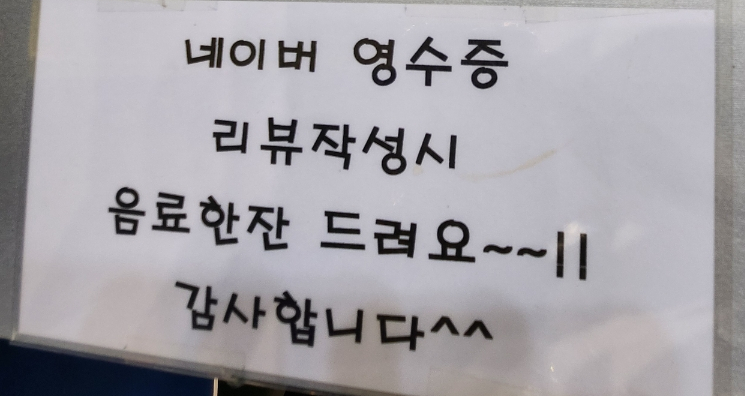 네이버 영수증
리뷰작성시
음료한잔 드려요~~!!
감사합니다^^